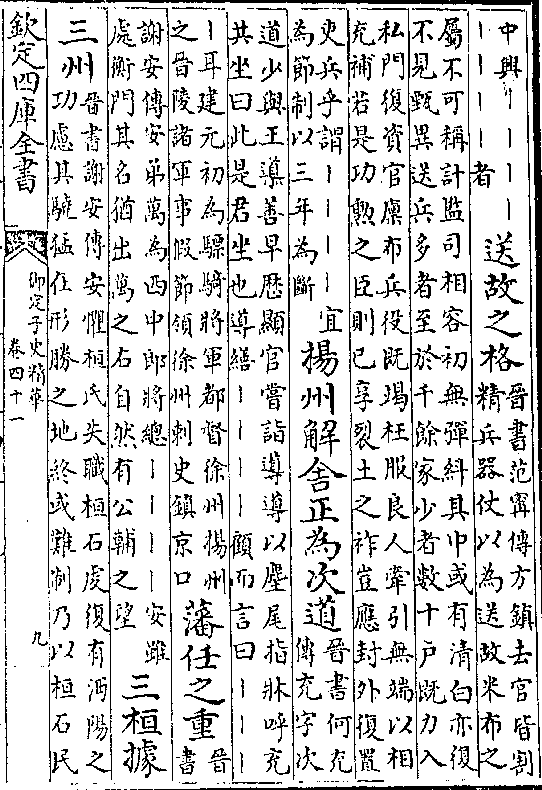 中興｜｜｜｜
｜｜｜｜者
送故之格
晉書范甯傳方鎮去官皆割
精兵器仗以為送故米布之
屬不可稱計監司相容初無彈糾其中或有清白亦復
不見甄異送兵多者至於千餘家少者數十戶既力入
私門復資官廩布兵役既竭枉服良人牽引無端以相
充補若是功勲之臣則已享裂土之祚豈應封外復置
吏兵乎謂｜｜｜｜宜
為節制以三年為斷
揚州解舍正為次道
晉書何充
傳充字次
道少與王導善早歴顯官嘗詣導導以麈尾指牀呼充
共坐曰此是君坐也導繕｜｜｜｜顧而言曰｜｜｜
｜耳建元初為驃騎將軍都督徐州揚州
之晉陵諸軍事假節領徐州刺史鎮京口
藩任之重
晉
書
謝安傳安弟萬為西中郎將總｜｜｜｜安雖
處衡門其名猶出萬之右自然有公輔之望
三桓據
三州
晉書謝安傳安懼桓氏失職桓石虔復有沔陽之
功慮其驍猛在形勝之地終或難制乃以桓石民
欽定四庫全書
御定子史精華
卷四十一
九